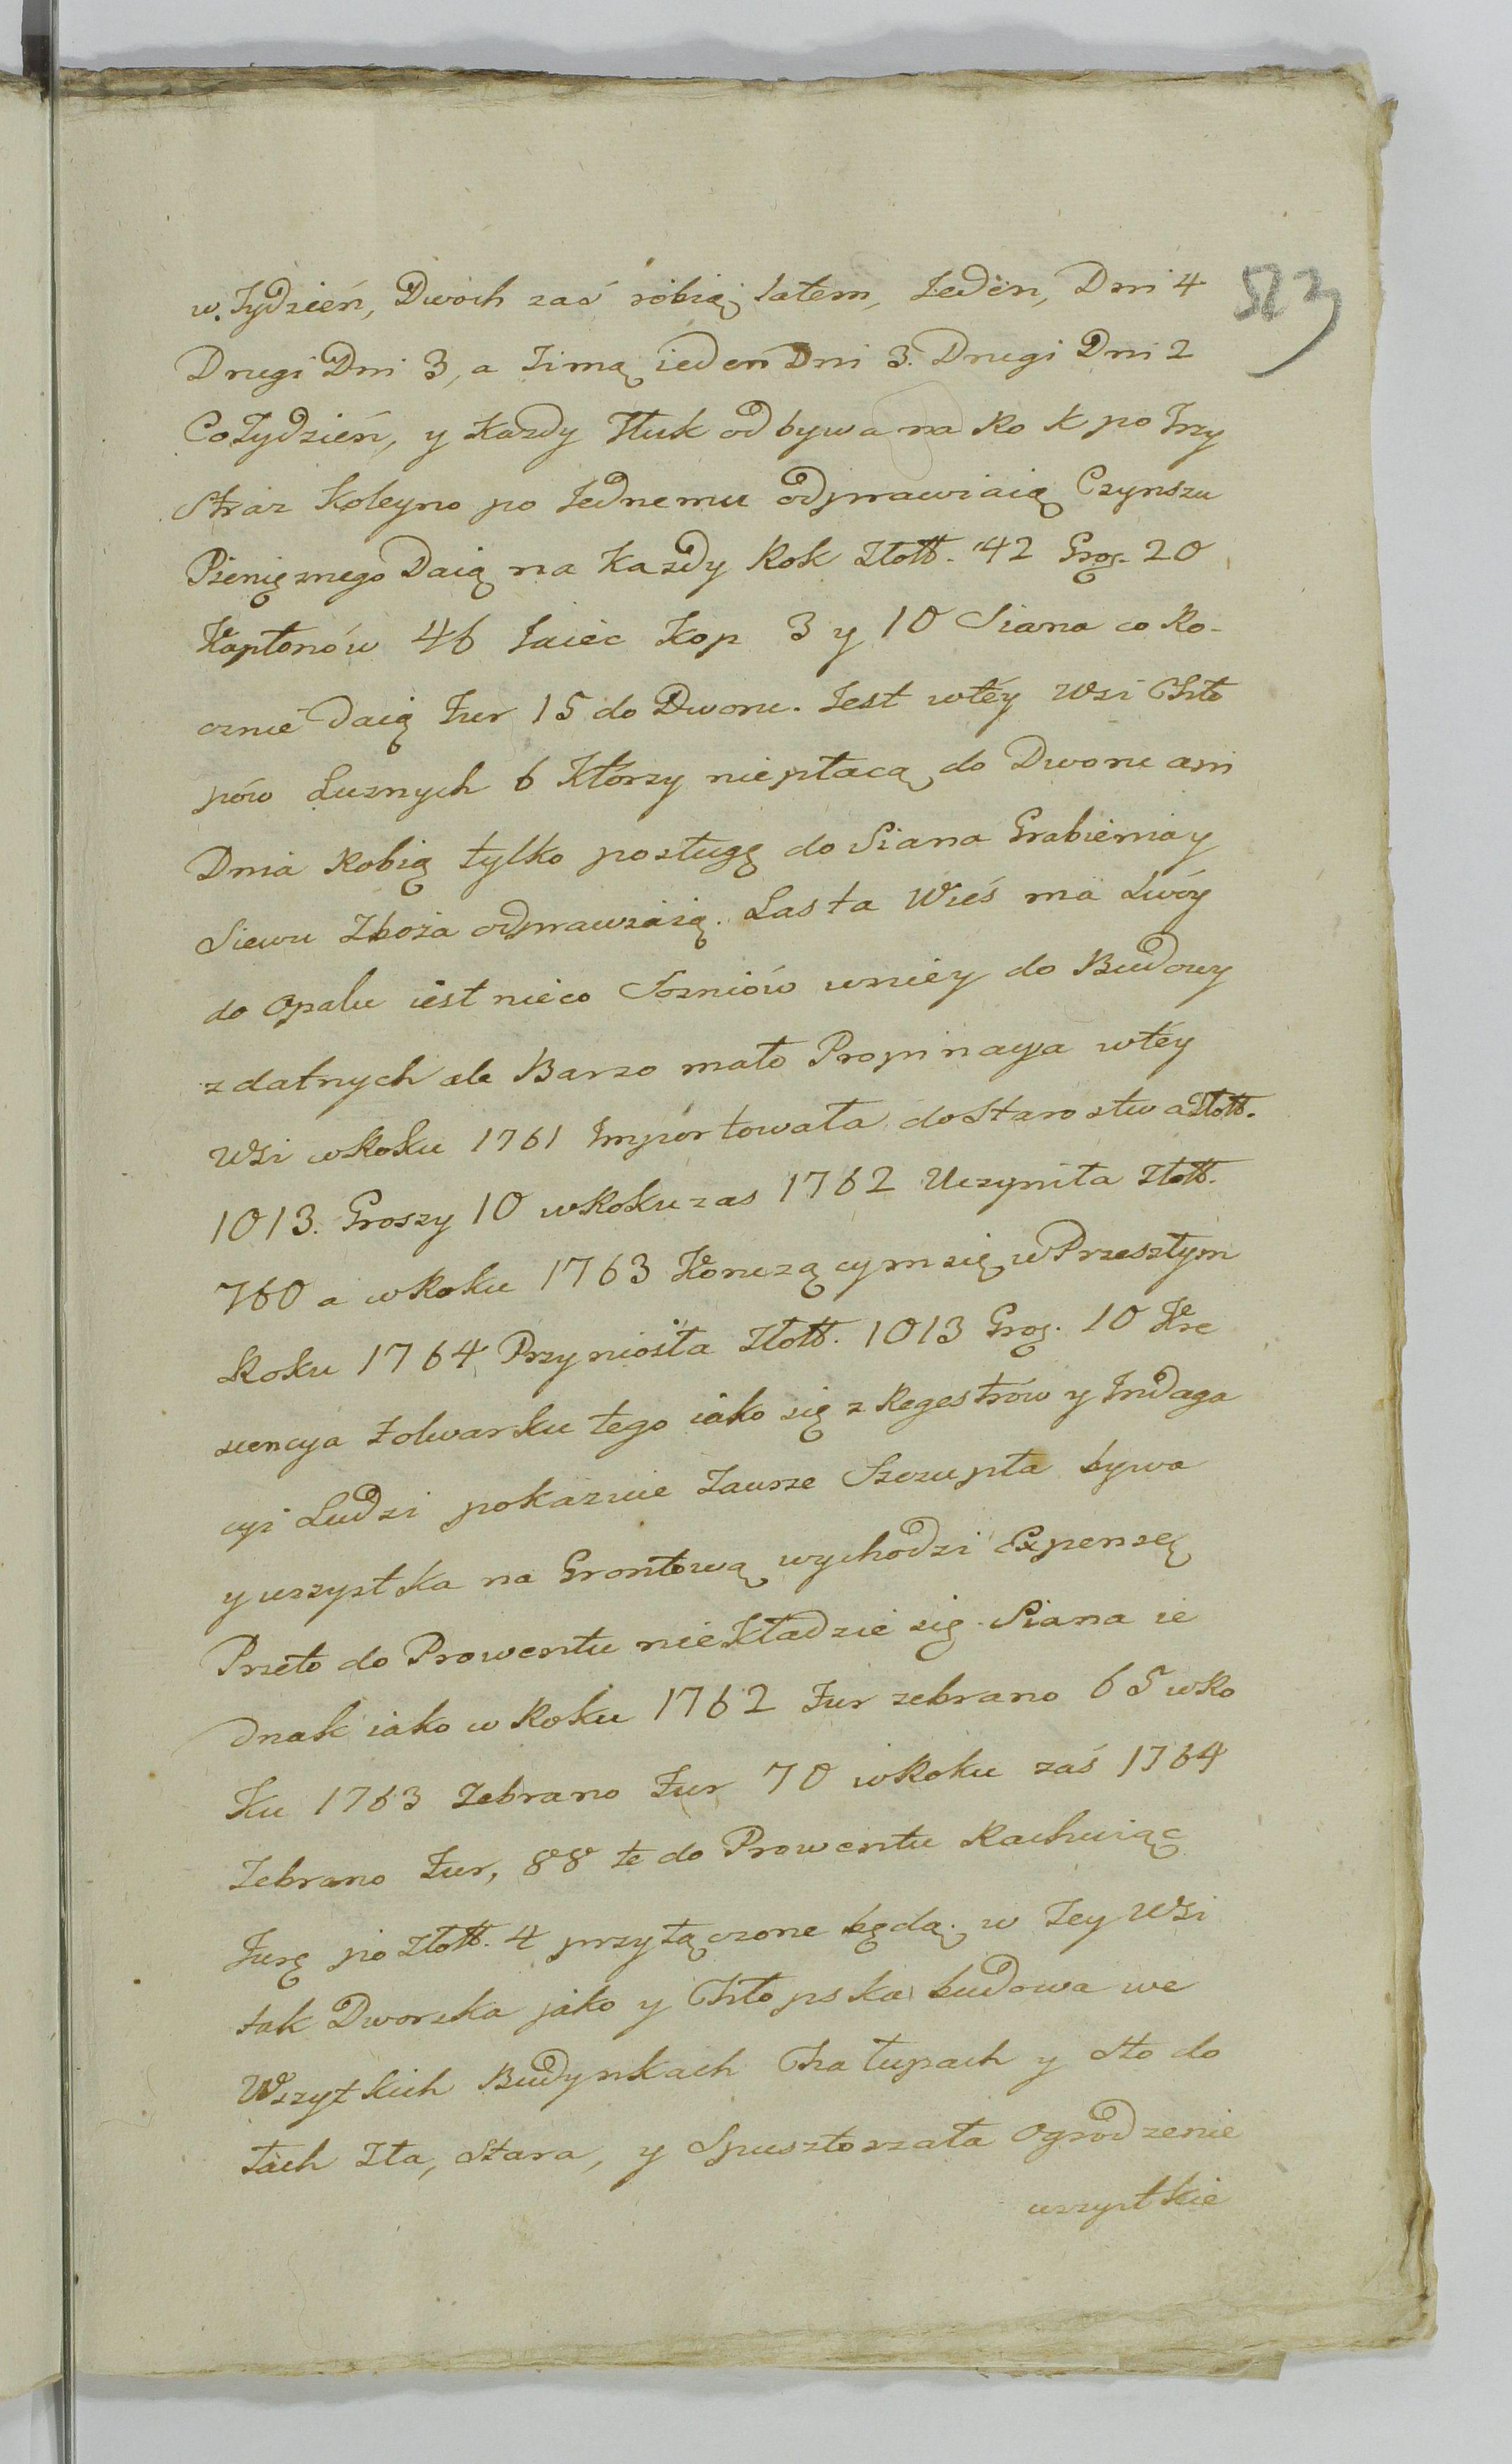 523
w. Tydzień, Dwóch zaś róbią latem, Jeden, Dni 4
Drugi Dni 3, a Zimą ieden Dni 3. Drugi Dni 2
Co Tydzień, y Każdy Tłuk odbywa na Rok po Trzy
Straz Koleyno po Jednemu odprawiaią Czynszu
Pieniężnego Daią na Każdy Rok Złott. 42 Gros. 20
Kapłonów 46 Jaiec Kop 3 y 10 Siana co Ro-
cznie Daią Fur 15 do Dworu. Jest wtéy Wsi Chło
pów Luznych 6 Którzy niepłacą do Dworu ani
Dnia Robią tylko posługę do Siana Grabienia y
Siewu Zboża odprawuią. Las ta Wieś ma Swóy
do Opału iest nieco Sosniów wniey do Budowy
zdatnych ale Barzo mało Propinacya wtéy
Wsi w Roku 1761 Importowała do Starostwa Złott.
1013. Groszy 10 w Roku zas 1762 Uczyniła Złott.
760 a w Roku 1763 Konczącym się w Przeszłym
Roku 1764 Przyniosła Złott. 1013 Gros. 10 Kre
scencya Folwarku tego iako się z Regestrów y Indaga
cyi Ludzi pokazuie Zawsze Szczupła bywa
y wszystka na Grontową wychodzi Expensę
Przeto do Prowentu nie Kładzie się. Siana ie
dnak iako w Roku 1762 Fur zebrano 65 w Ro
Ku 1763 Zebrano Fur 70 w Roku zaś 1764
Zebrano Fur, 88 te do Prowentu Rachuiąc
Furę po Złott. 4 przyłączone będą. w Tey Wsi
tak Dworska jako y Chłopska budowa we
Wszytkich Budynkach Chałupach y Stodo
łach Zła, Stara, y Spusztoszała Ogrodzenie
wszystkie